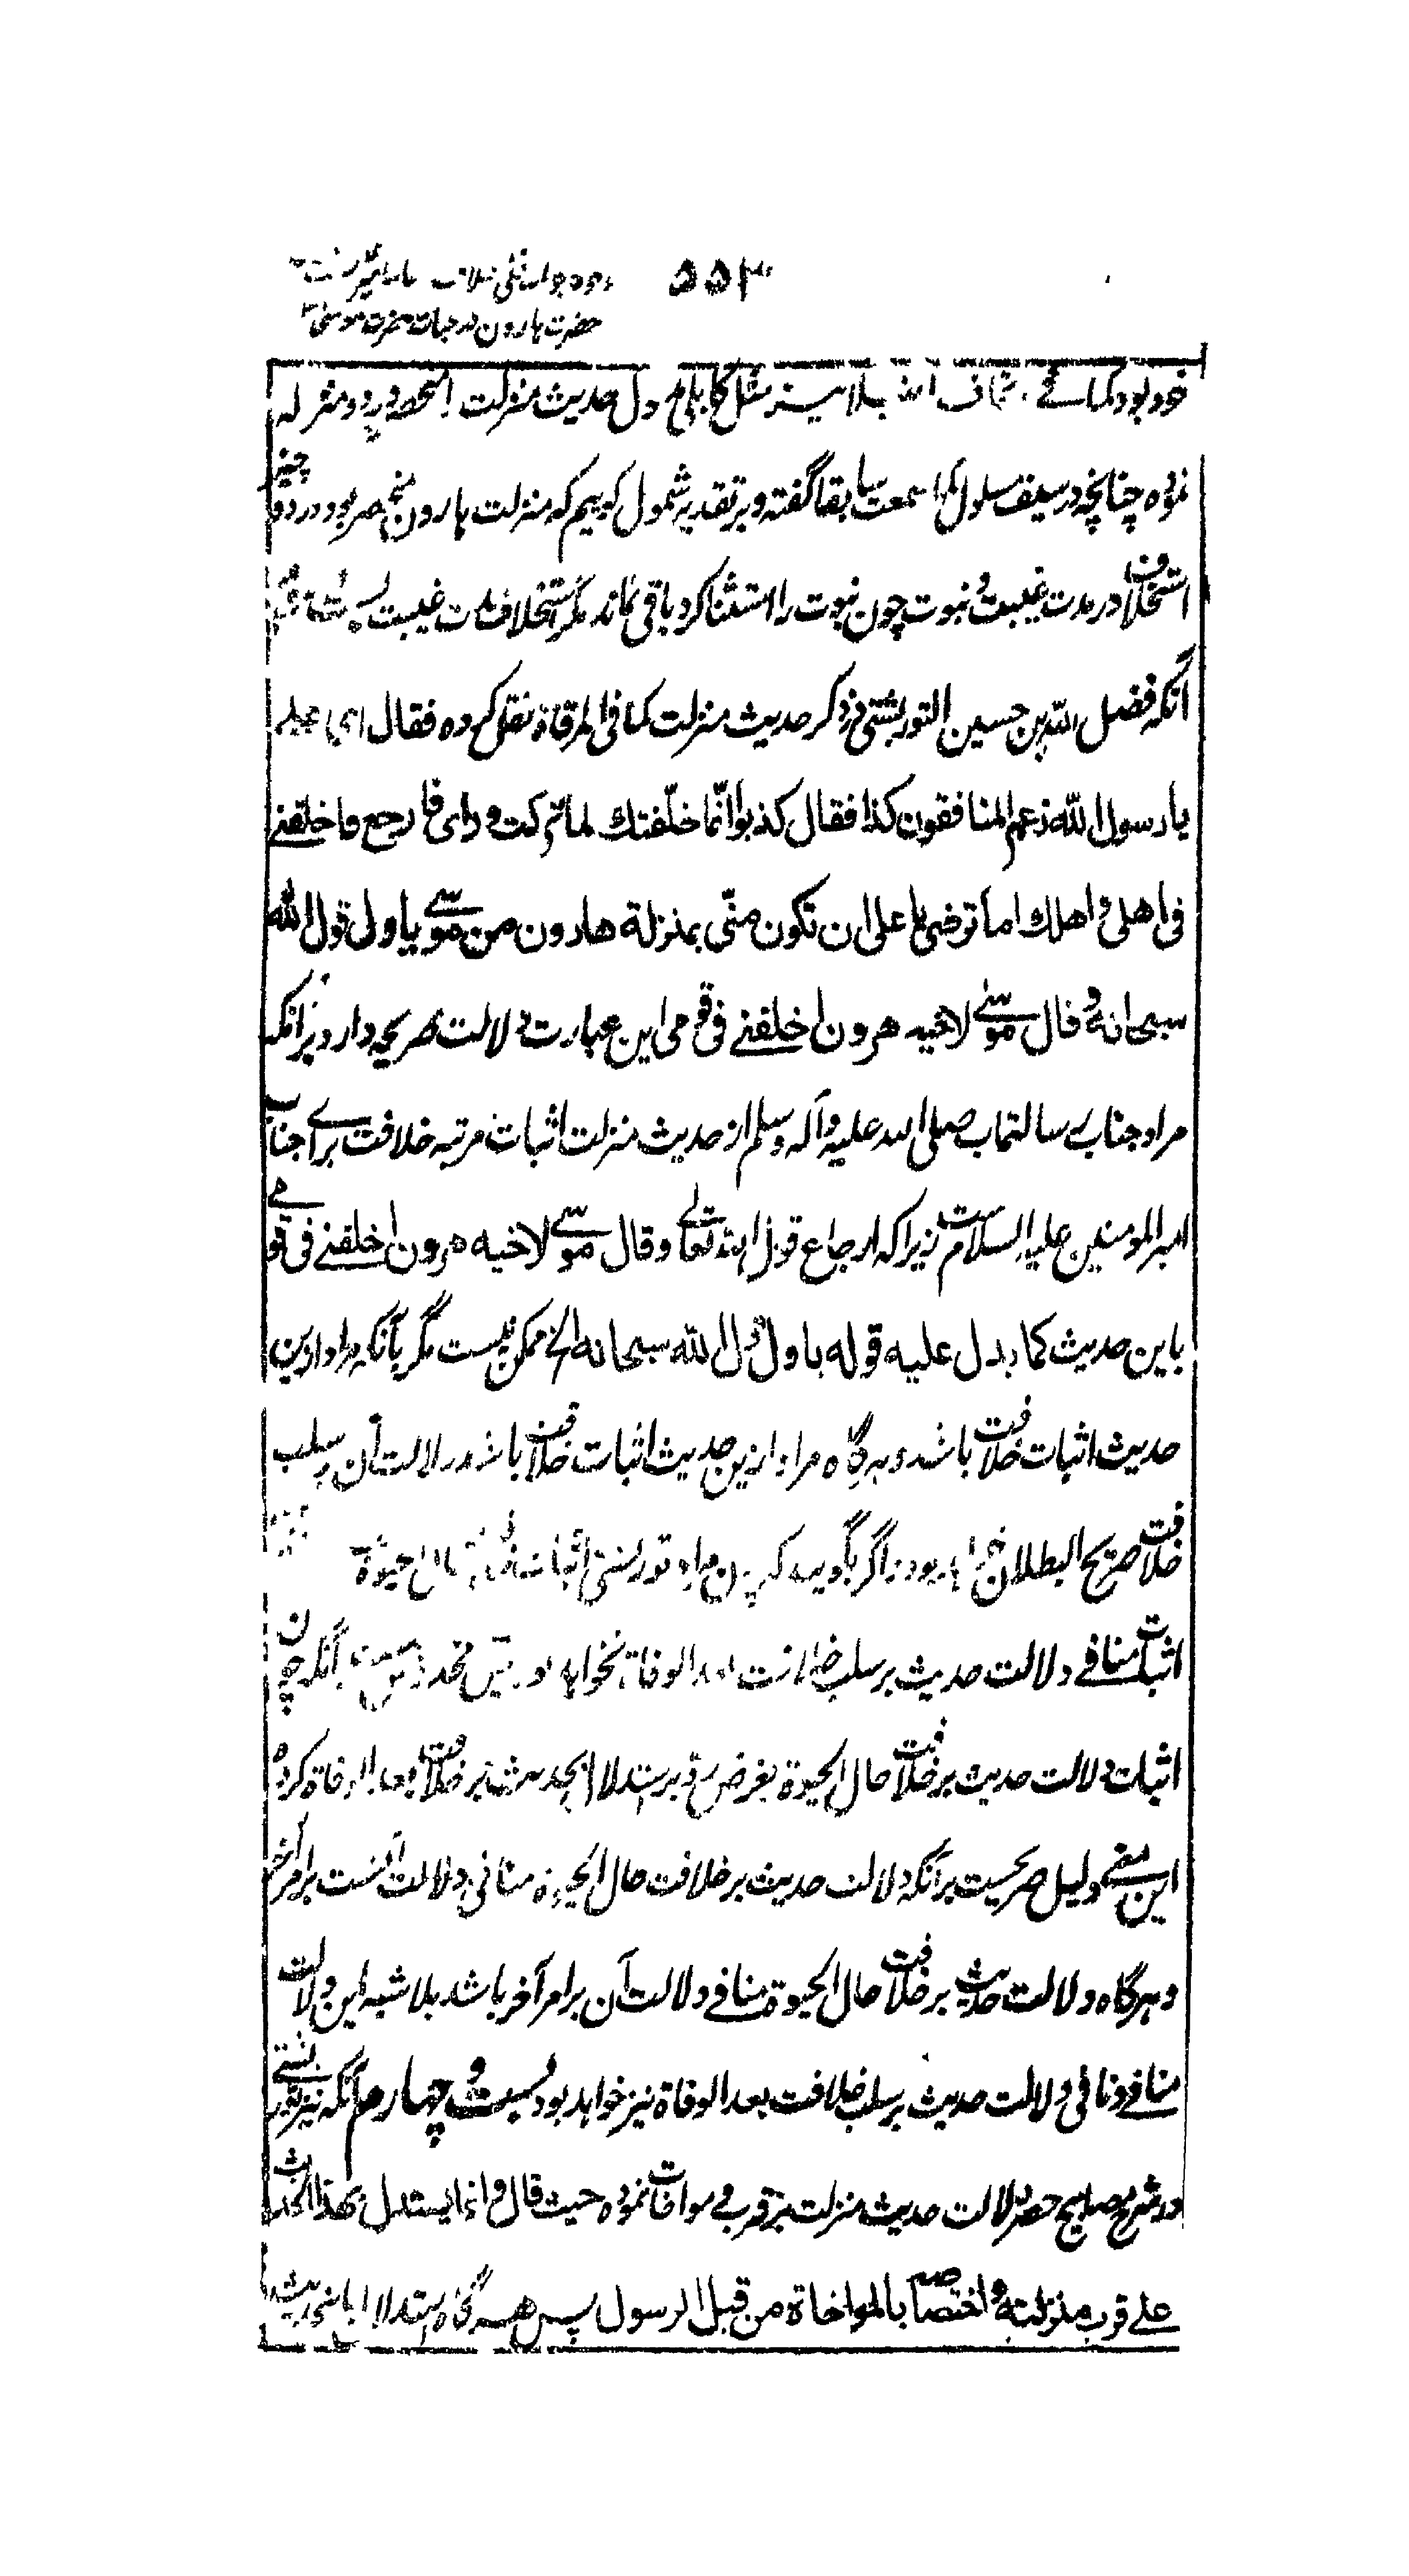 ۵۵۳
حضرت هارون در حیات حضرت موسی
خود بود کما مثل کابلی دل حدیث منزلت له
نموده چنانچه در سیف مسلول کما سمعت سابقا گفته و بر تقدیر شمول گوییم که منزلت هارون منحصر بود در دو چیز
استخلاف در مدت غیبت و نبوت چون نبوت را استثنا کرد باقی نماند مگر استخلاف مدت غیبت
آنکه فضل الله بن حسین التوربشتی در ذکر حدیث منزلت کما فی المرقاة نقل کرده فقال
یا رسول الله زعم المنافقون کذا فقال کذبوا انّما خلّفتك لما ترکت ورای فارجع فاخلفنے
فی اهلی و اهلك اما ترضی یا علی ان تکون منّی بمنزلة هارون من موسے یاول قول الله
سبحانه و قال موسے لاخیه هرون اخلفنے فی قومی این عبارت دلالت صریحه دارد بر آنکه
مراد جناب رسالتمآب صلی الله علیه وآله وسلم از حدیث منزلت اثبات مرتبه خلافت براے جناب
امیر المومنین علیه السلام ست زیرا که ارجاع قول الله تعالے وقال موسے لاخیه هرون اخلفنے فی قومے
باین حدیث کما یدل علیه قوله یاول قول الله سبحانه الخ ممکن نیست مگر بآنکه مراد ازین
حدیث اثبات خلافت باشد و هرگاه مراد ازین حدیث اثبات خلافت باشد دلالت آن بر سلب
خلافت صریح البطلان خواهد بود و اگر بگویید که چون مراد توربشتی اثبات خلافت حال حیوة
اثبات منافے دلالت حدیث بر سلب خلافت بعد الوفاة نخواهد بود پس آنکه چون
اثبات دلالت حدیث بر خلافت حال الحیوة بغرض رد بر استدلال بحدیث بر خلافت بعد الوفاة کرده
این معنے دلیل صریحست بر آنکه دلالت حدیث بر خلافت حال الحیوة منافی دلالت آنست بر امر آخر
و هرگاه دلالت حدیث بر خلافت حال الحیوة منافے دلالت آن بر امر آخر باشد بلا شبه این دلالت
منافے و نافی دلالت حدیث بر سلب خلافت بعد الوفاة نیز خواهد بود بست و چهارم آنکه نیز توربشتے
در شرح مصابیح حصر دلالت حدیث منزلت بر قرب و مواخات نموده حیث قال و انما یستدل بهذا الحدیث
علے قرب منزلته و اختصاصه بالمواخاة من قبل الرسول پس هرگاه استدلال باین حدیث